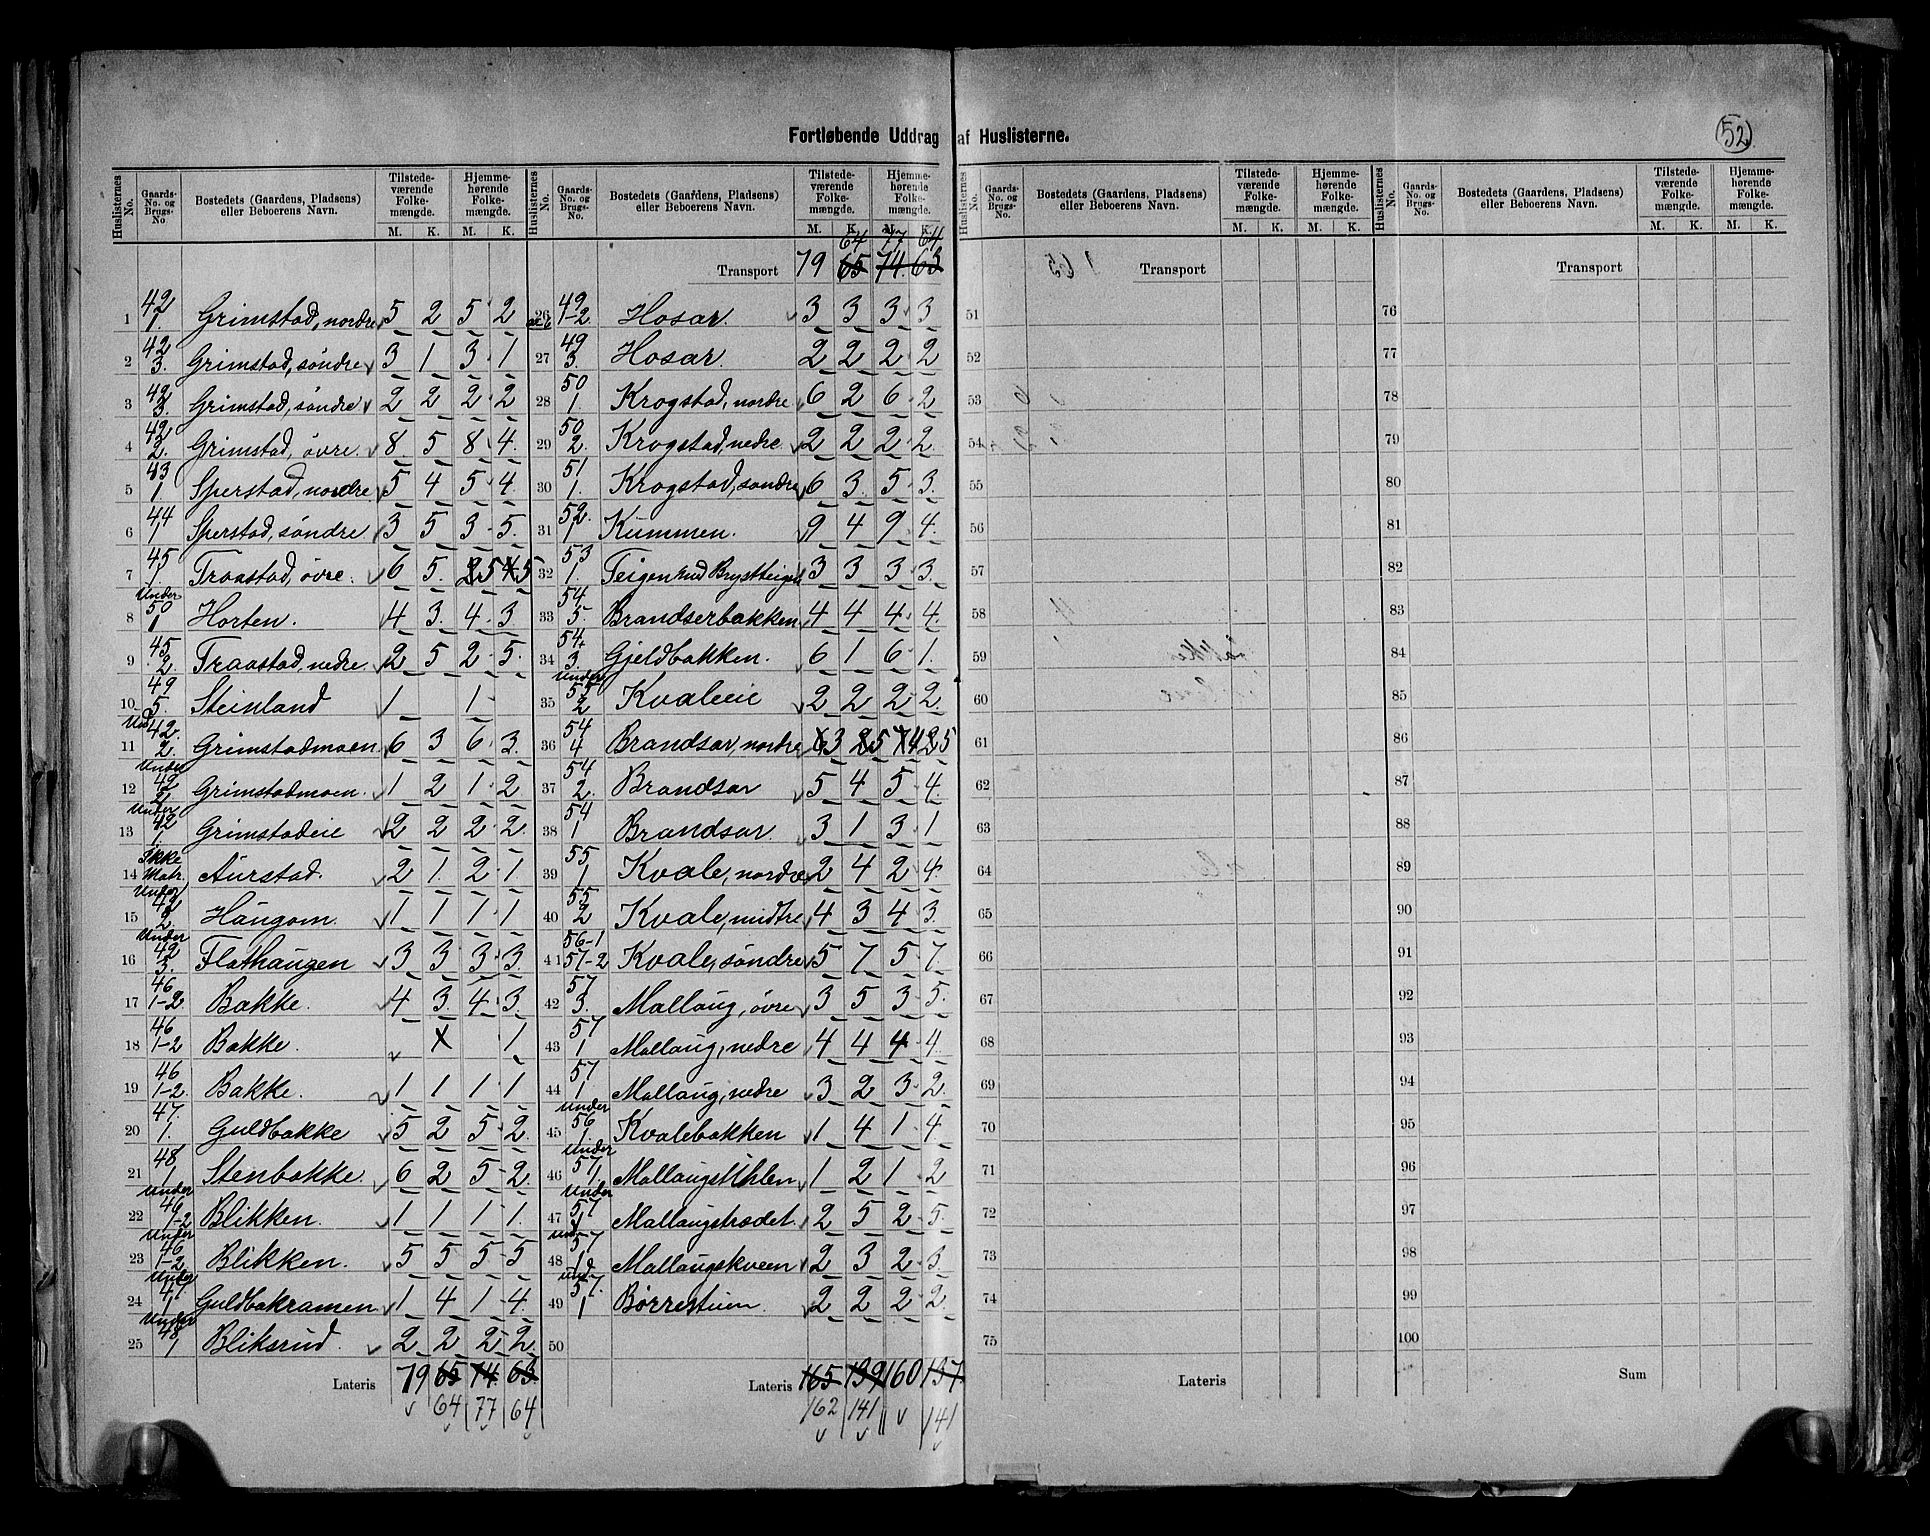 Fortløbende Uddrag af Huslisterne.
52
Huslisternes No. | Gaards-No. og Brugs-No | Bostedets (Gaardens, Pladsens) eller Beboerens Navn. | Tilstedeværende Folkemængde. M. K. | Hjemmehørende Folkemængde. M. K.
1 42 1. Grimstad, nordre 5 2 5 2
2 42 3. Grimstad, söndre 3 1 3 1
3 42 3. Grimstad, söndre 2 2 2 2
4 42 2. Grimstad, övre. 8 5 8 4.
5 43 1 Sperstad, nordre 5 4 5 4.
6 44 1 Sperstad, söndre 3 5 3 5.
7 45 1. Traastad, övre. 6 5. 2 5 4 5
8 Under 50 1 Horten. 4 3. 4 3
9 45 2. Traastad, nedre. 2 5 2 5.
10 49 5. Steinland 1 1
11 Und 42. 2. Grimstadmoen. 6 3 6 3.
12 Under 42 2. Grimstadmoen. 1 2 1 2
13 Under 42 1. Grimstadeie 2 2 2 2.
14 Ikke Matr. Aurstad. 2 1. 2 1
15 Under 42 2 Haugom. 1 1 1 1
16 Under 42 3. Flathaugen 3 3 3 3.
17 46 1-2 Bakke. 4 3 4 3
18 46 1-2 Bakke. x 1
19 46 1-2 Bakke. 1 1 1 1
20 47. 1. Guldbakke 5 2 5 2.
21 48 1 Stenbakke. 6 2 5 2
22 Under 46 1-2 Blikken. 1 1 1 1.
23 Under 46 1-2 Blikken. 5 5 5 5
24 Under 47. 1 Guldbakramen 1 4 1 4.
25 Under 48 1 Bliksrud. 2 2 2 2.
Lateris 79 65 74. 63
64 77 64
Huslisternes No. | Gaards-No. og Brugs-No. | Bostedets (Gaardens, Pladsens) eller Beboerens Navn. | Tilstedeværende Folkemængde. M. K. | Hjemmehørende Folkemængde. M. K.
64 77 64
Transport 79 65 74. 63
26 49 1-2. Hosar. 3 3 3 3
27 49 3. Hosar. 2 2 2 2
28 50 1. Krogstad, nordre 6 2 6 2
29 50 2. Krogstad, nedre 2 2 2 2.
30 51 1. Krogstad, söndre 6 3. 5 3.
31 52. 1 Kummen. 9 4 9 4.
32 53 1. Teigen 3 3 3 3.
33 54 5. Brandserbakken 4 4 4 4.
34 54 3. Gjeldbakken. 6 1 6 1.
35 Under 55 2 Kvaleeie 2 2 2 2.
36 54 4 Brandsar, nordre 6 3 2 5 7 4 2 5
37 54 2. Brandsar 5 4 5 4.
38 54 1 Brandsar. 3 1 3 1
39 55 1 Kvale, nordre 2 4 2 4.
40 55 2 Kvale, midtre 4 3 4 3.
41 56-1 57-2 Kvale, söndre 5 7 5 7.
42 57 3. Mallaug, övre 3 5 3 5.
43 57 1 Mallaug, nedre 4 4 4 4.
44 57 1 Mallaug, nedre 3 2 3 2
45 Under 56 1. Kvalebakken 1 4 1 4.
46 Under 57 1. 1 2 1 2
47 Under 57 1 Mallaugstrædet. 2 5 2 5.
48 Und. 57 1 Mallaugskveen 2 3 2 3.
49 Und. 57. 1 Börrestuen. 2 2 2 2.
50
Lateris 165 139 160 137.
162 141 141
Huslisternes No. | Gaards-No. og Brugs-No. | Bostedets (Gaardens, Pladsens) eller Beboerens Navn. | Tilstedeværende Folkemængde. M. K. | Hjemmehørende Folkemængde. M. K.
Transport
51
52
53
54
55
56
57
58
59
60
61
62
63
64
65
66
67
68
69
70
71
72
73
74
75
Lateris
Huslisternes No. | Gaards-No. og Brugs-No. | Bostedets (Gaardens, Pladsens) eller Beboerens Navn. | Tilstedeværende Folkemængde. M. K. | Hjemmehørende Folkemængde. M. K.
Transport
76
77
78
79
80
81
82
83
84
85
86
87
88
89
90
91
92
93
94
95
96
97
98
99
100
Sum